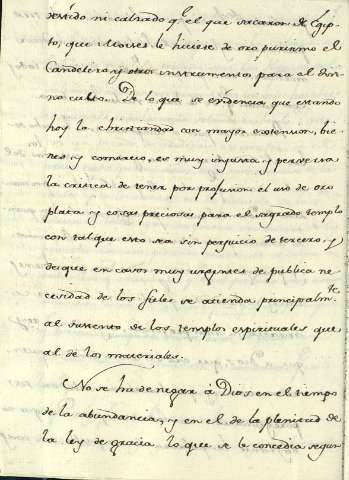 vestido ni calzado q.e el que sacaron de Egip-
to, que Moises le hiciese de oro purisimo el
Candelero, y otros instrumentos para el divi-
no culto. De lo que se evidencia que estando
hoy la christiandad con mayor extension, bie-
nes, y comercio, es muy injusta y perversa
la critica de tener por profusion el uso de oro
plata, y cosas preciosas para el sagrado templo
con tal que esto sea sin perjuicio de tercero, y
de que en casos muy urgentes de publica ne-
cesidad de los fieles se atienda principalm.te
al sustento de los templos espirituales que
al de los materiales.
No se ha de negar á Dios en el tiempo
de la abundancia, y en el de la plenitud de
la ley de gracia lo que se le concedia segun